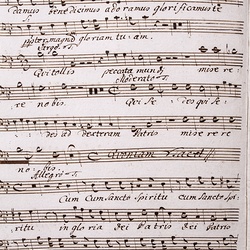 damus benedicimus adoramus glorificamus te
propter magnam gloriam tuam.
Largo
Qui tollis peccata mundi misere re
Moderato
re nobis. Qui Se des qui se
des ad dexteram Patris misere re
no bis. Quoniam tacet
Allegro
Cum Cum Sancto Spiritu Cum Sancto Spi
ritu in gloria Dei Patris Dei Patris